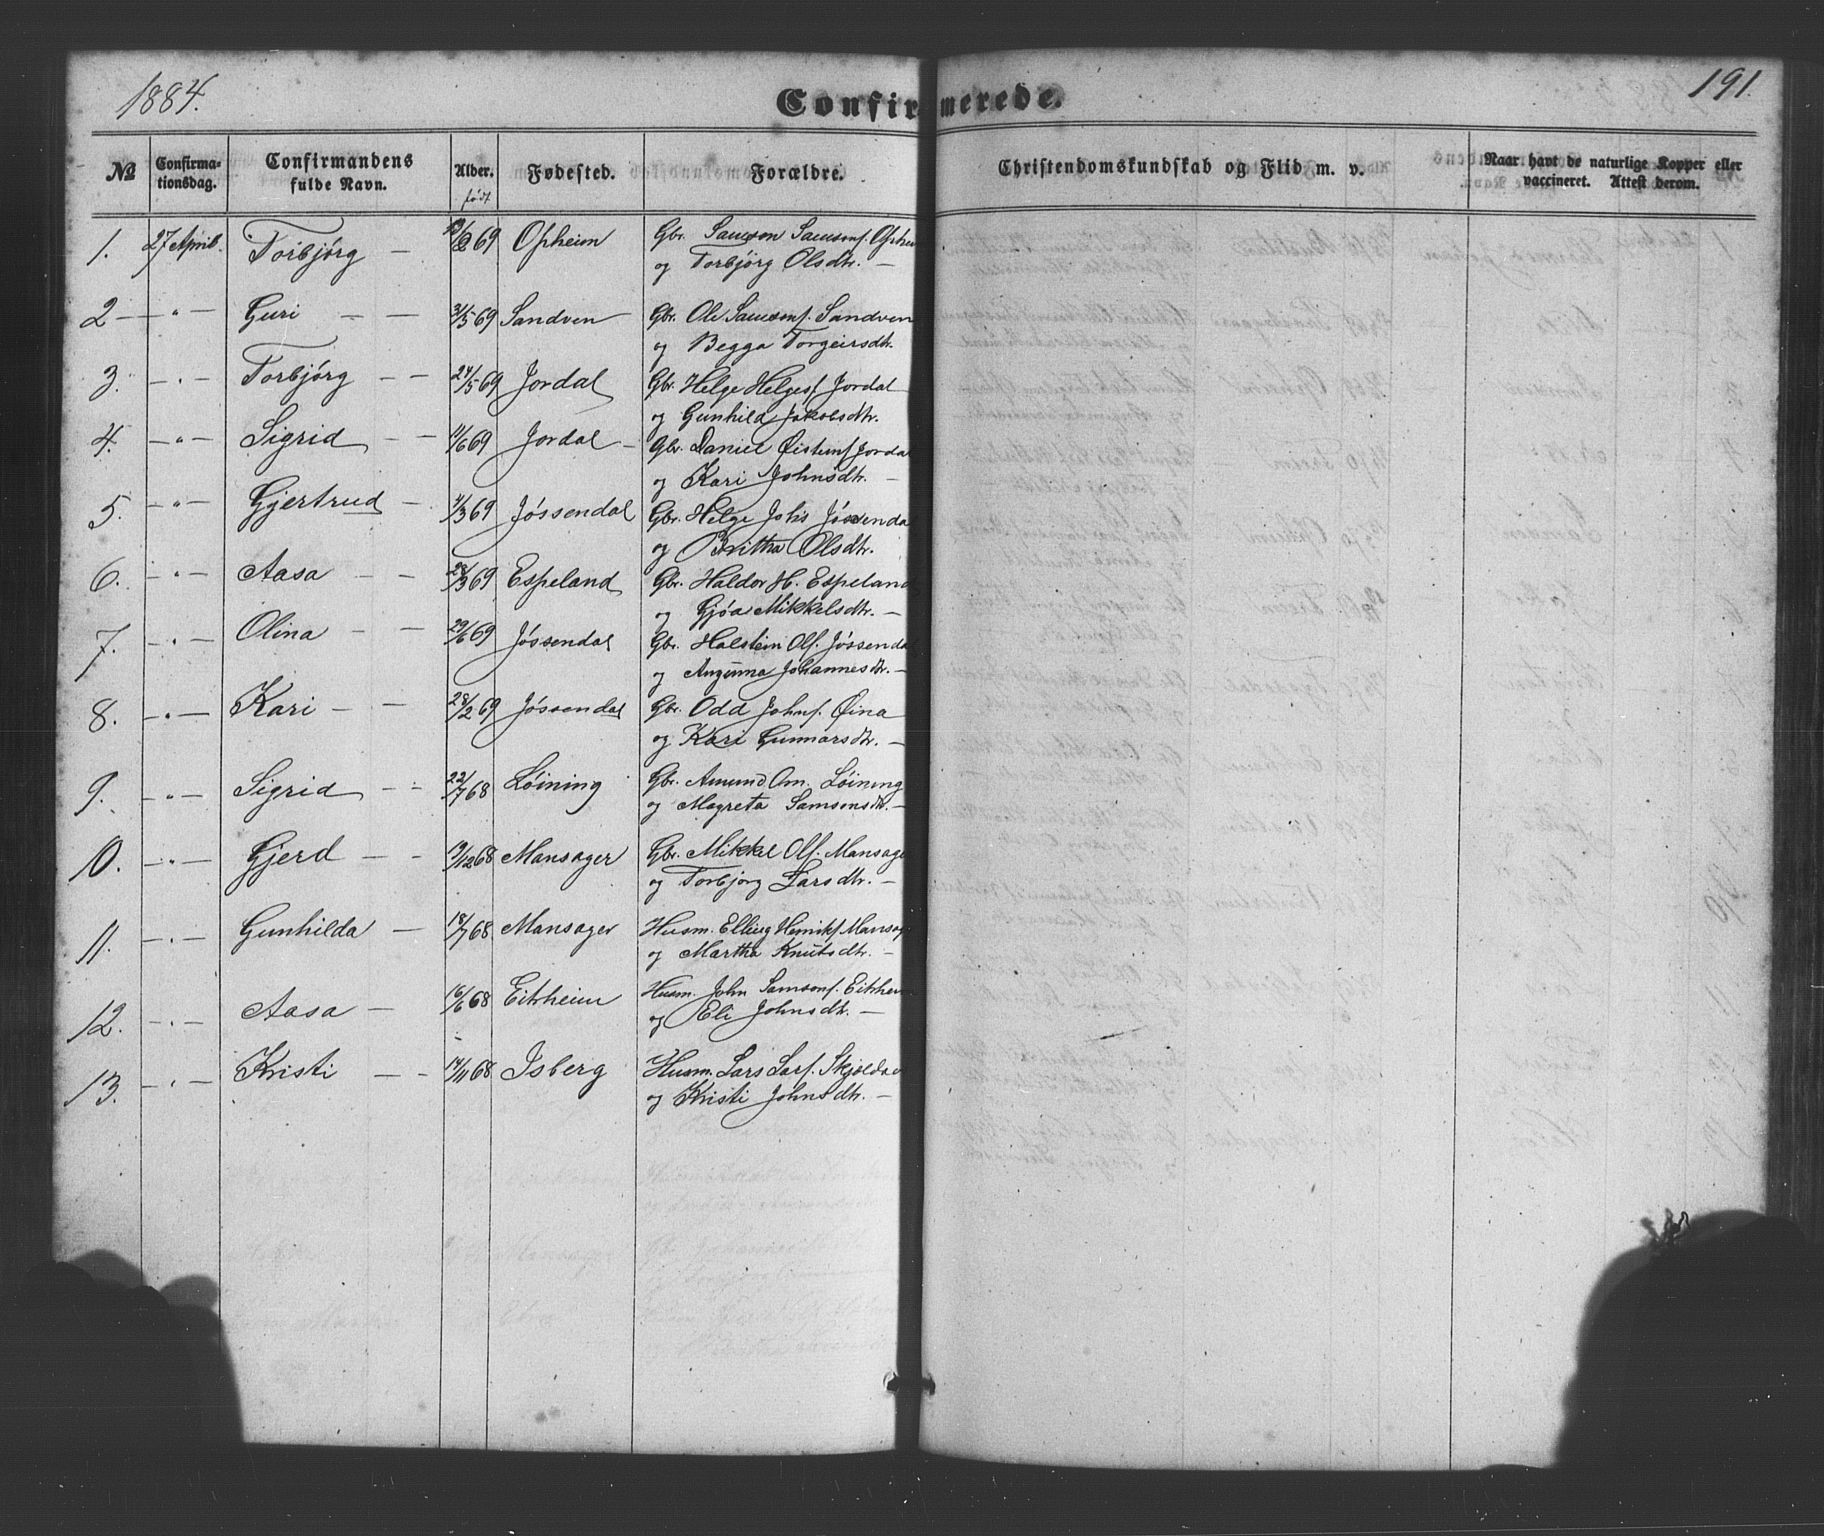 1884.
Confirmerede.
191
№
Confirma-
tionsdag.
Confirmandens
fulde Navn.
Alder.
født
Fødested.
Forældre.
Christendomskundskab og Flid m. v.
Naar havt de naturlige Kopper eller
vaccineret. Attest derom.
1. 27 April. Torbjörg — 69 Opheim Gbr. Samson Samsons. Ophei
og Torbjörg Olsdtr. —
2 — " — Guri — — 31/5 69 Sandven Gbr. Ole Samsons. Sandven
og Begga Torgeirsdtr.
3. — " — Torbjörg — — 24/5 69 Jordal Gbr. Helge Helges. Jordal
og Gunhild Jakobsdtr.
4. — " — Sigrid — — 11/6 69 Jordal — Gbr. Daniel Øistens. Jordal
og Kari Johnsdtr. —
5. — " — Gjertrud — 4/3 69 Jóssendal Gbr. Helge Johs Jóssenda
og Britha Olsdtr.
6. — " — Aasa — — 28/3 69 Espeland Gbr. Haldor H. Espeland
og Gjóa Mikkelsdtr. —
7. — " — Olina — — 29/6 69 Jóssendal Gbr. Halstein Ols. Jóssenda
og Johannesdtr. —
8. — " — Kari — — 28/2 69 Jóssendal Gbr. Odd Johns. Øina
og Kari Gunnarsdtr. —
9. — " — Sigrid — — 22/7 68 Lóining Gbr. Amund Am. Lóining
og Magreta Samsonsdtr. —
10. — " — Gjerd — — 19/12 68 Mansager Gbr. Mikkel Ols. Mansage
og Torbjörg Larsdtr. —
11. — " — Gunhilda — 18/7 68 Mansager Husm. Elling Henriks. Mansag
og Martha Knutsdtr. —
12. — " — Aasa — 16/6 68 Eitrheim Husm. John Samsons. Eitrheim
og Eli Johnsdtr. —
13. — " — Kristi — — 14/11 68 Isberg Husm. Lars Lars. Skjælda
og Kristi Johnsdtr. —